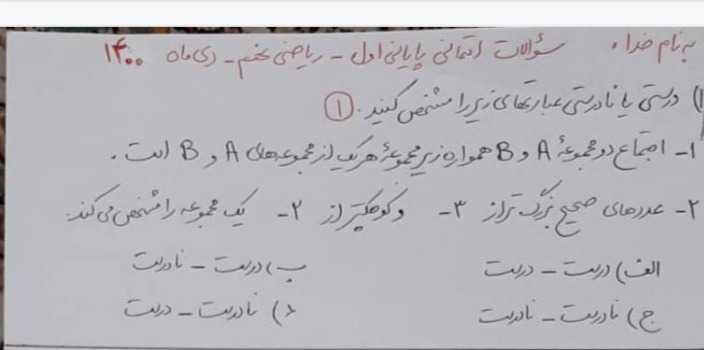 به نام خدا، سؤالات امتحانی پایانی اول - ریاضی نهم - دی ماه ۱۴۰۰
۱) درستی یا نادرستی عبارتهای زیر را مشخص کنید. ۱
۱- اجتماع دو مجموعهٔ A و B همواره زیر مجموعهٔ هر یک از مجموعه های A و B است.
۲- عددهای صحیح بزرگ تر از ۳- و کوچکتر از ۲- یک مجموعه را مشخص می کند.
الف) درست - درست ب) درست - نادرست
ج) نادرست - نادرست د) نادرست - درست